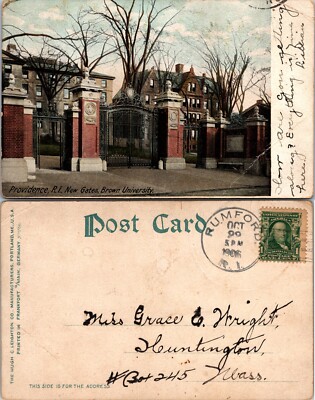 Providence, R.I. New Gates, Brown University.
How are you getting
along? Everything is fine
here.
Post Card
THE HUGH C. LEIGHTON CO., MANUFACTURERS, PORTLAND, ME., U.S.A.
PRINTED IN FRANKFORT GERMANY
THIS SIDE IS FOR THE ADDRESS
RUMFORD
OCT
29
5 PM
1906
R.I.
Miss Grace E. Wright,
Huntington,
# Box 245 Mass.